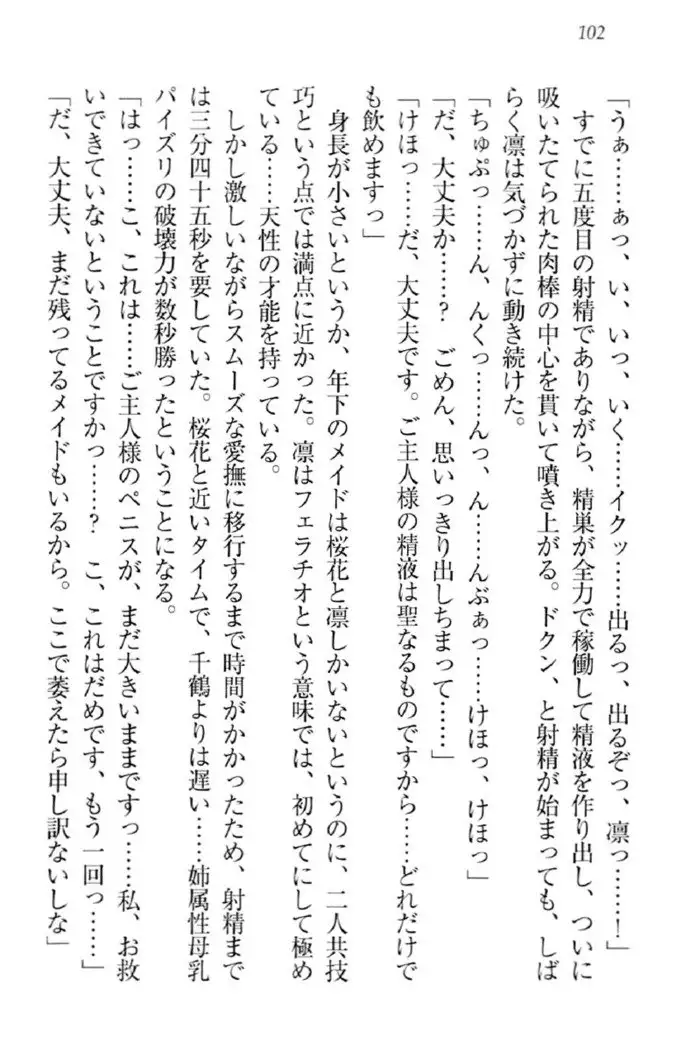 102
「うぁ……ぁっ、い、いっ、いく……イクッ……出るっ、出るぞっ、凛っ……！」
すでに五度目の射精でありながら、精巣が全力で稼働して精液を作り出し、ついに
吸いたてられた肉棒の中心を貫いて噴き上がる。ドクン、と射精が始まっても、しば
らく凛は気づかずに動き続けた。
「ちゅぷっ……ん、んくっ……んっ、ん……んぶぁっ……けほっ、けほっ」
「だ、大丈夫か……？　ごめん、思いっきり出しちまって……」
「けほっ……だ、大丈夫です。ご主人様の精液は聖なるものですから……どれだけで
も飲めますっ」
身長が小さいというか、年下のメイドは桜花と凛しかいないというのに、二人共技
巧という点では満点に近かった。凛はフェラチオという意味では、初めてにして極め
ている……天性の才能を持っている。
しかし激しいながらスムーズな愛撫に移行するまで時間がかかったため、射精まで
は三分四十五秒を要していた。桜花と近いタイムで、千鶴よりは遅い……姉属性母乳
パイズリの破壊力が数秒勝ったということになる。
「はっ……こ、これは……ご主人様のペニスが、まだ大きいままですっ……私、お救
いできていないということですかっ……？　こ、これはだめです、もう一回っ……」
「だ、大丈夫、まだ残ってるメイドもいるから。ここで萎えたら申し訳ないしな」